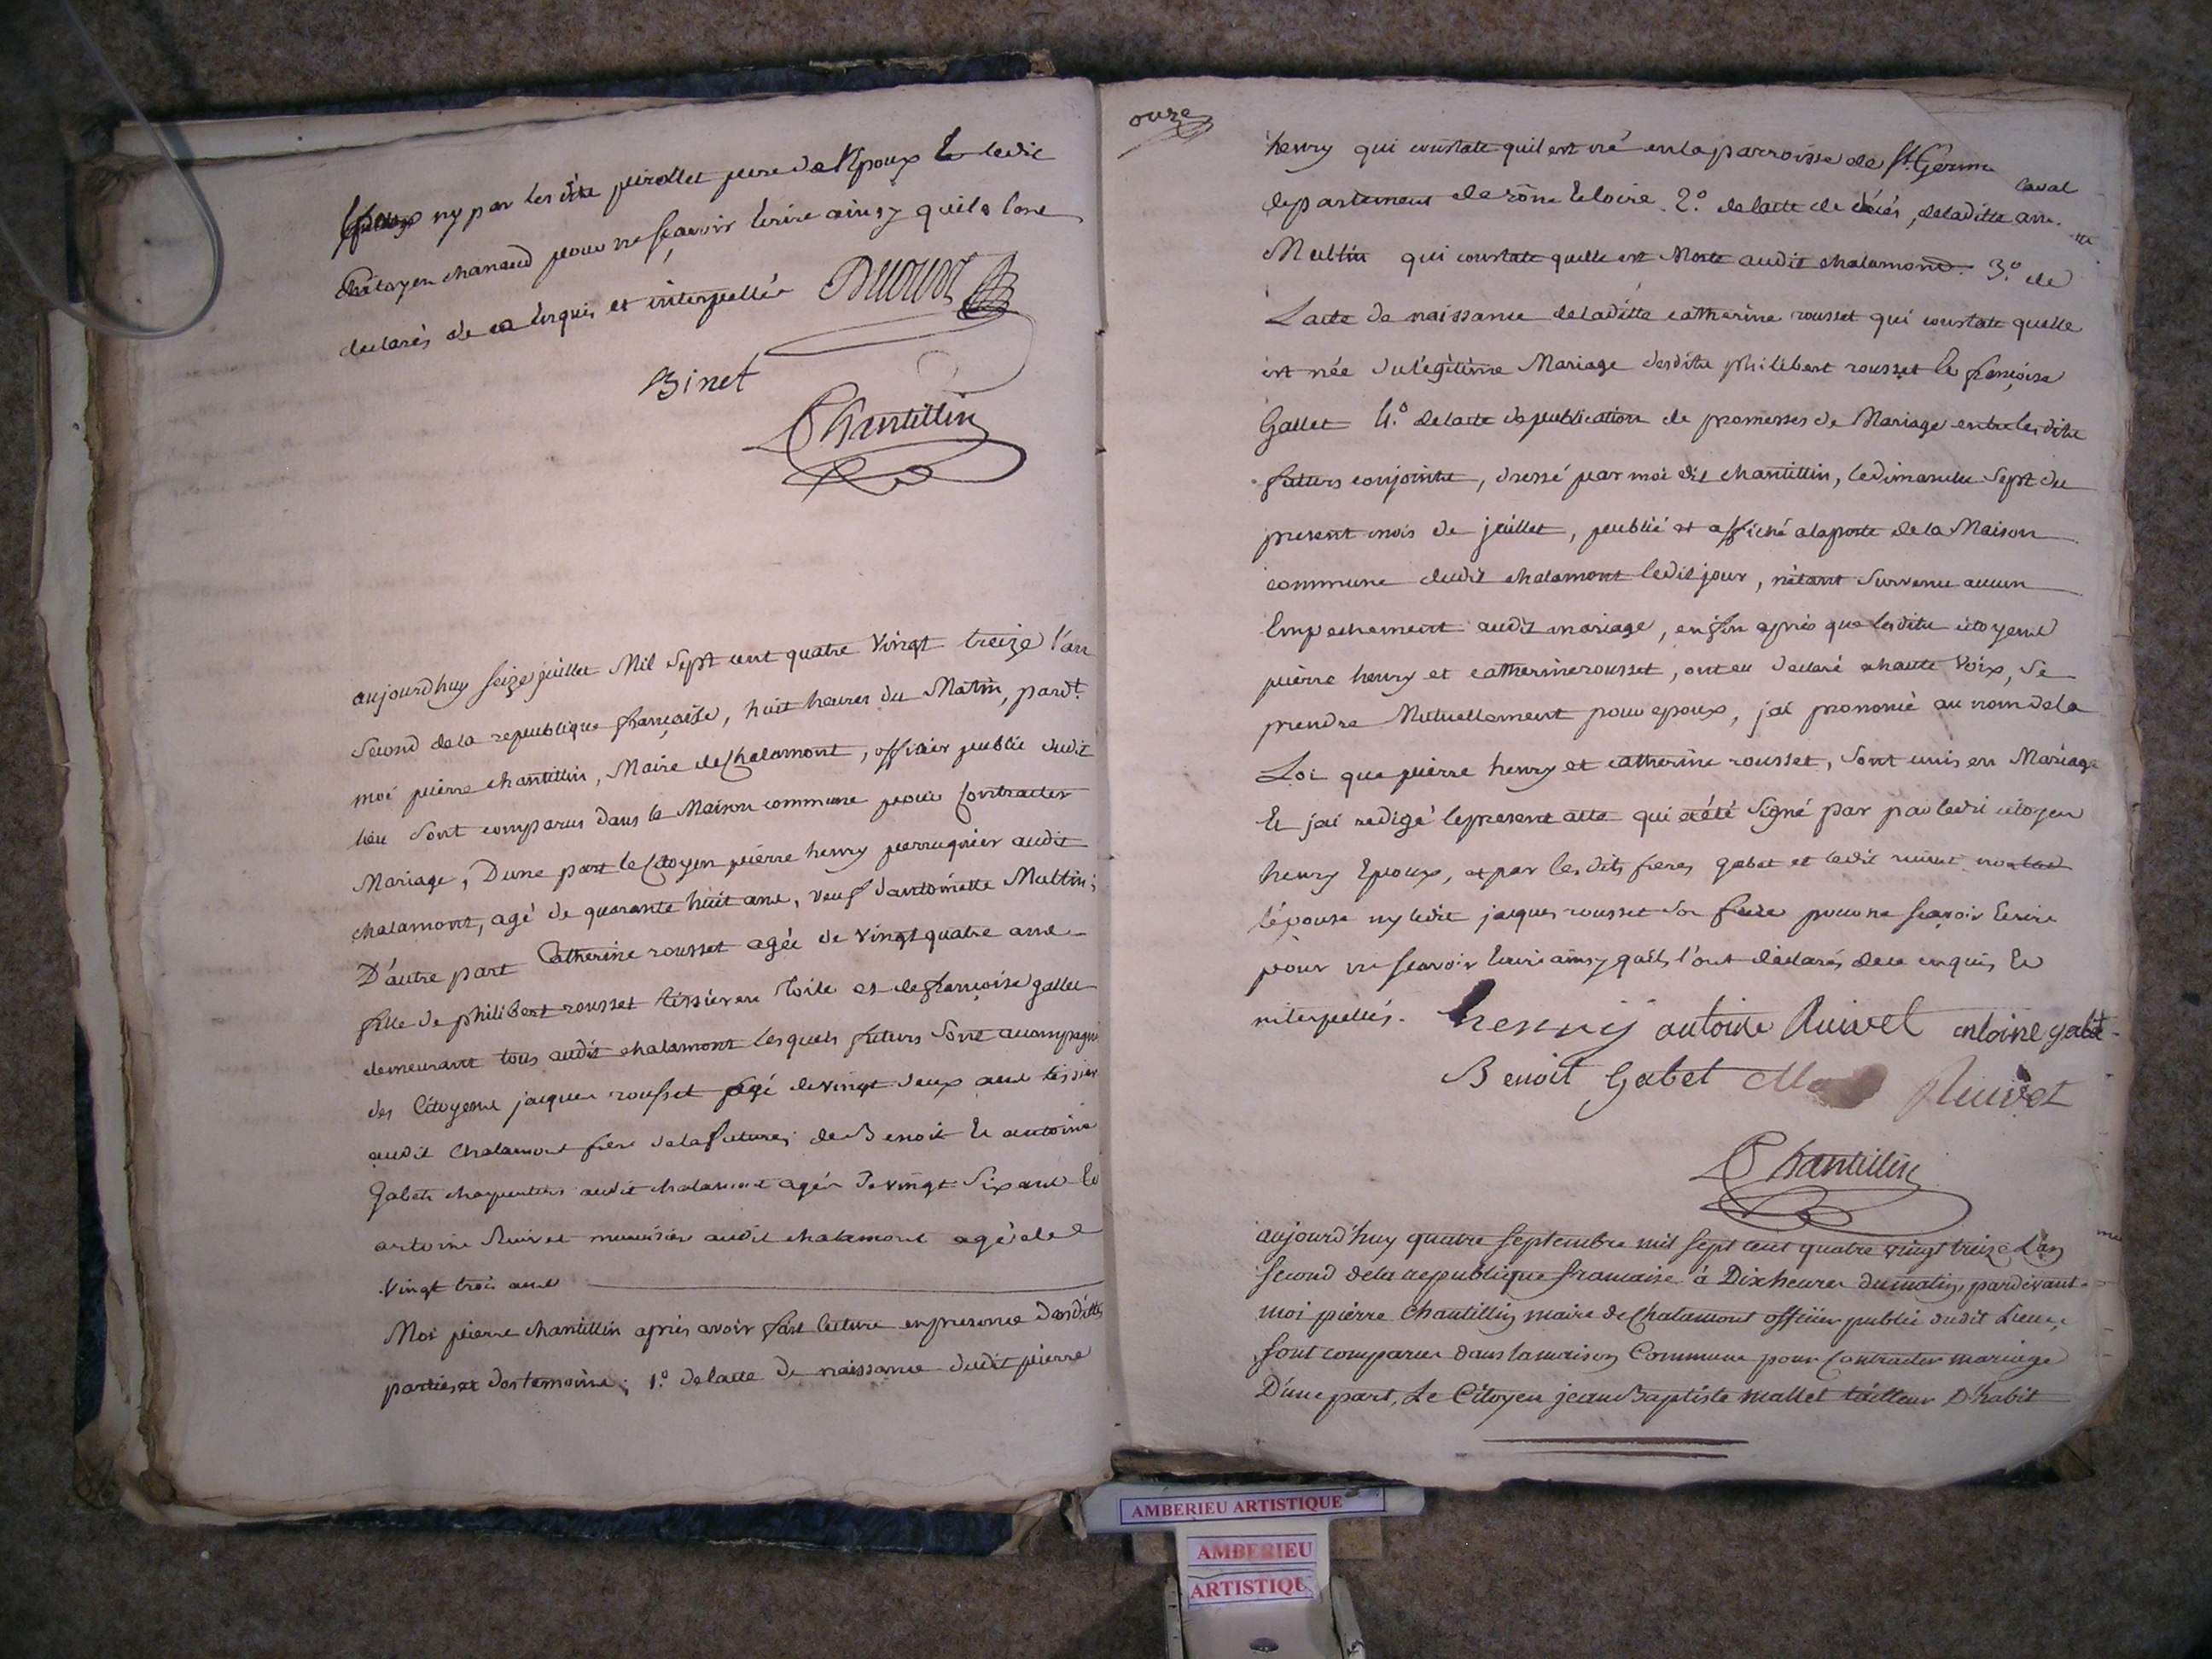 Epoux ny par lesdits pirollet pere de l'Epoux Et ledit
Citoyen chanaud pour ne sçavoir Ecrire ainsy quils l'ont
declarés de ce Enquis et interpellés
Binet
Chantillin
aujourdhuy seize juillet Mil Sept cent quatre Vingt treize l'an
Second dela republique française, huit heures du Matin, pardt.
moi pierre chantillin, Maire de Chalamont, officier public dudit
lieu sont comparus dans la Maison commune pour Contracter
Mariage, Dune part le Citoyen pierre henry perruquier audit
chalamont, agé de quarante huit ans, veuf dantoinette Multin;
D'autre part Catherine rousset agée de Vingt quatre ans
fille de philibert rousset tissier en toile et de françoise gallet
demeurant tous audit chalamont lesquels futurs sont accompagnés
des Citoyens jacques rousset agé de vingt deux ans tissier
audit Chalamont frere dela future; de Benoit Et antoine
Gabet charpentiers audit chalamont agés de vingt six ans Et
antoine Ruivet menuisier audit chalamont agé de
Vingt trois ans
Moi pierre chantillin après avoir fait lecture en presence desdittes
parties et des temoins; 1.° de lacte de naissance dudit pierre
onze
henry qui constate quil est né en la parroisse de St. Germain
laval
departement de rône Et loire. 2.° de lacte de décés, de laditte
Multin qui constate quelle est Morte audit chalamond. 3.° de
Lacte de naissance de laditte catherine rousset qui constate quelle
est née du légitime Mariage desdits philibert rousset Et françoise
Gallet 4.° de lacte de publication de promesses de Mariage entre lesdits
futurs conjoints, dressé par moi dit chantillin, le dimanche Sept du
present mois de juillet, publié et affiché a la porte de la Maison
commune dudit chalamont ledit jour, nétant survenu aucun
Empechement audit mariage, enfin après que lesdits citoyens
pierre henry et catherine rousset, ont eu declaré a haute Voix, Se
prendre Mutuellement pour epoux, jai prononcé au nom de la
Loi que pierre henry et catherine rousset, sont unis en Mariage
Et jai redigé le present acte qui a été Signé par par ledit citoyen
henry Epoux, et par lesdits freres gabet et ledit ruivet non
lépouse ny ledit jacques rousset son frere pour ne sçavoir Ecrire
pour ne scavoir Ecrire ainsy quils l'ont déclarés de ce enquis Et
interpellés. henry antoine Ruivet antoine gabet
Benoit Gabet Ruivet
Chantillin
aujourd'huy quatre septembre mil sept cent quatre vingt treize L'an
second de la republique francaise à Dix heures du matin, pardevant
moi pierre Chantillin maire de Chalamont officier public dudit Lieu,
sont comparus dans la maison Commune pour Contracter mariage
D'une part, Le Citoyen jean Baptiste mallet tailleur D'habit
AMBERIEU ARTISTIQUE
AMBERIEU
ARTISTIQU